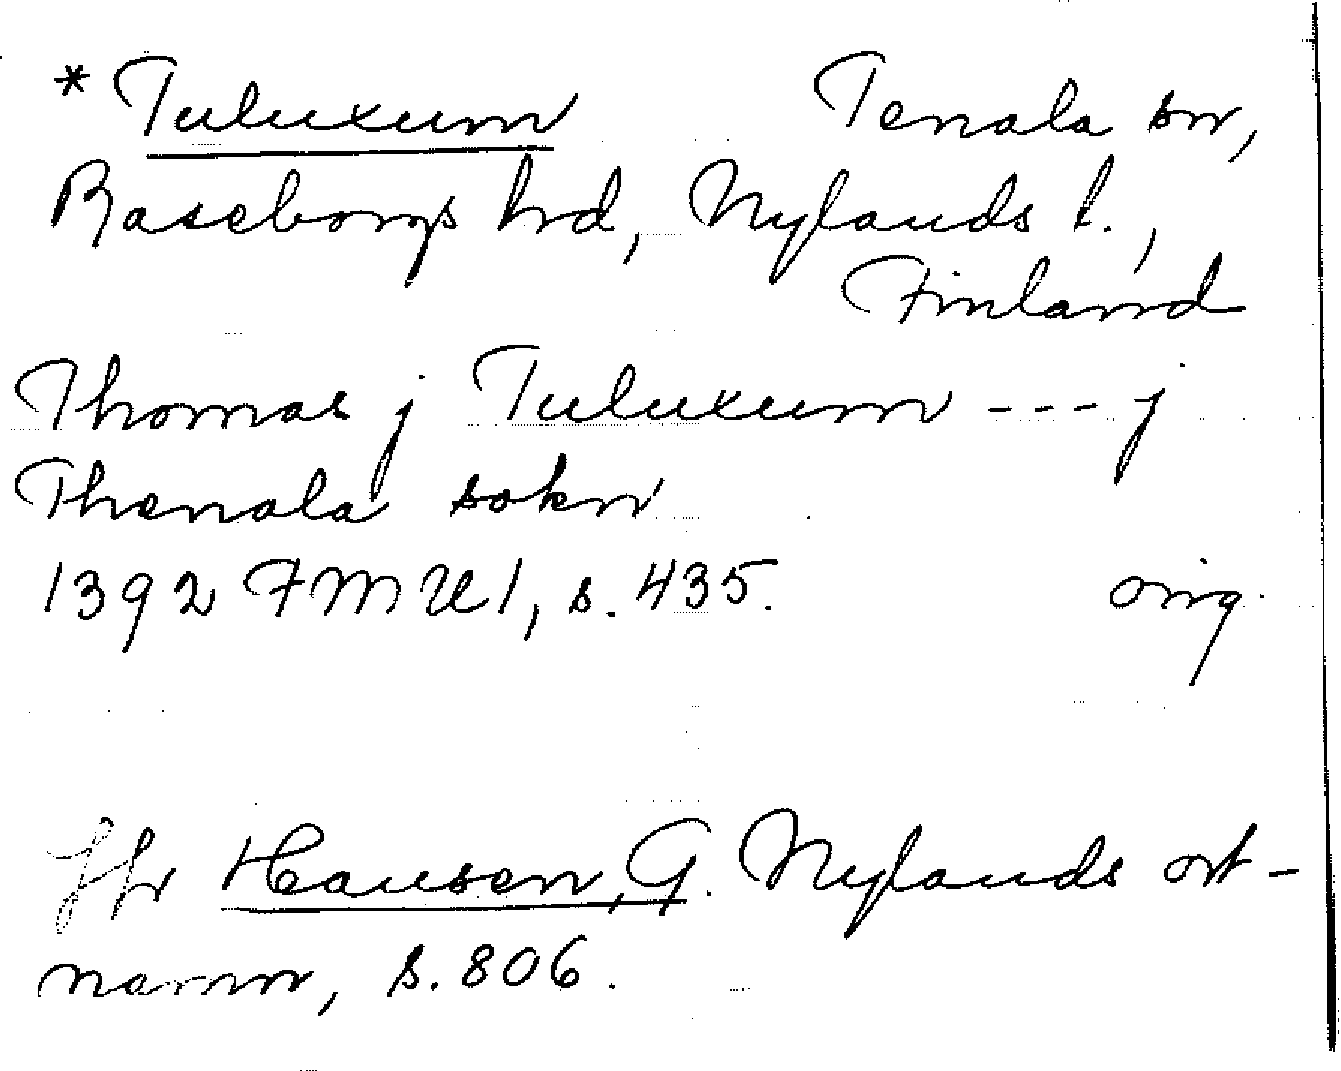 * Tuluxum Tenala sn,
Raseborgs hrd, Nylands l.,
Finland
Thomas j Tuluxum --- j
Thenala sokn
1392 FMU 1, s. 435. orig.
Jfr Hausen, G. Nylands ort-
namn, s. 806.